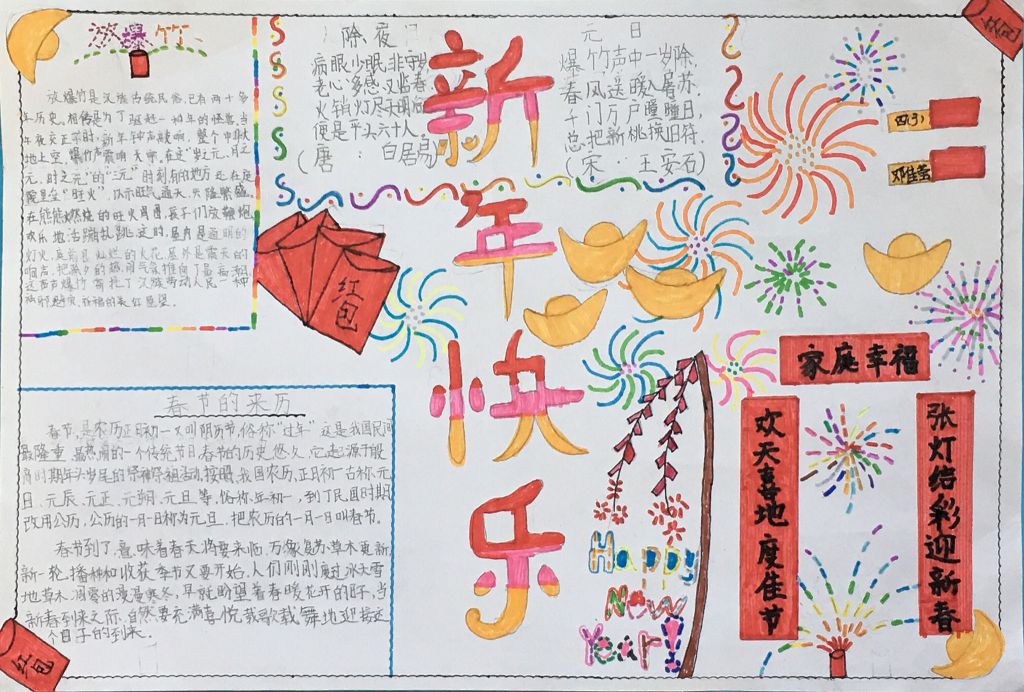 放爆竹
放爆竹是汉族传统民俗,已有两千多
年历史。相传是为了驱赶一种年的怪兽。当
年夜交正子时,新年钟声敲响,整个中华大
地上空,爆竹声震响天宇。在这"岁之元、月之
元、时之元"的"三元"时刻,有的地方还在庭
院里垒"旺火",以示旺气通天,兴隆繁盛。
在熊熊燃烧的旺火周围,孩子们放鞭炮,
欢乐地活蹦乱跳,这时,屋内是通明的
灯火,庭前是灿烂的火花,屋外是震天的
响声,把除夕的热闹气氛推向了最高潮。
春节的来历
春节,是农历正月初一,又叫阴历年,俗称"过年"这是我国民间
最隆重、最热闹的一个传统节日。春节的历史悠久,它起源于殷
商时期年头岁尾的祭神祭祖活动。按照我国农历,正月初一古称元
日、元辰、元正、元朔、元旦等,俗称年初一,到了民国时期
改用公历,公历的一月一日称为元旦,把农历的一月一日叫春节。
春节到了,意味着春天将要来临,万象复苏草木更新,
新一轮播种和收获季节又要开始。人们刚刚度过冰天雪
地草木凋零的漫漫寒冬,早就盼望着春暖花开的日子,当
新春到来之际,自然要充满喜悦载歌载舞地迎接这
个日子的到来。
除夜
病眼少眠非守岁,
老心多感又临春。
火销灯尽天明后,
便是平头六十人。
(唐:白居易)
元日
爆竹声中一岁除,
春风送暖入屠苏。
千门万户曈曈日,
总把新桃换旧符。
(宋:王安石)
新
年
快
乐
红包
红包
红包
家庭幸福
欢天喜地度佳节
张灯结彩迎新春
Happy
New
Year!